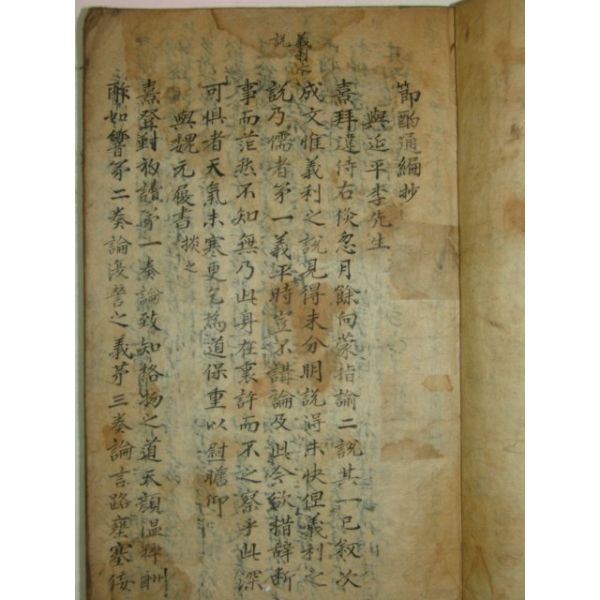 節酌通編抄
與延平李先生
熹拜違侍右倐忽月餘向蒙指諭二說其一已敘次
成文惟義利之說見得未分明說得未快但義利之
說乃儒者第一義平時豈不講論及此今欲措辭斷
事而茫然不知無乃此身在裏許而不之察乎此深
可懼者天氣未寒更乞爲道保重以慰瞻仰
與魏元履書 掞之
熹登對初讀第一奏論致知格物之道天顔溫粹酬
酢如響第二奏論復讐之義第三奏論言路壅塞佞
義利
說